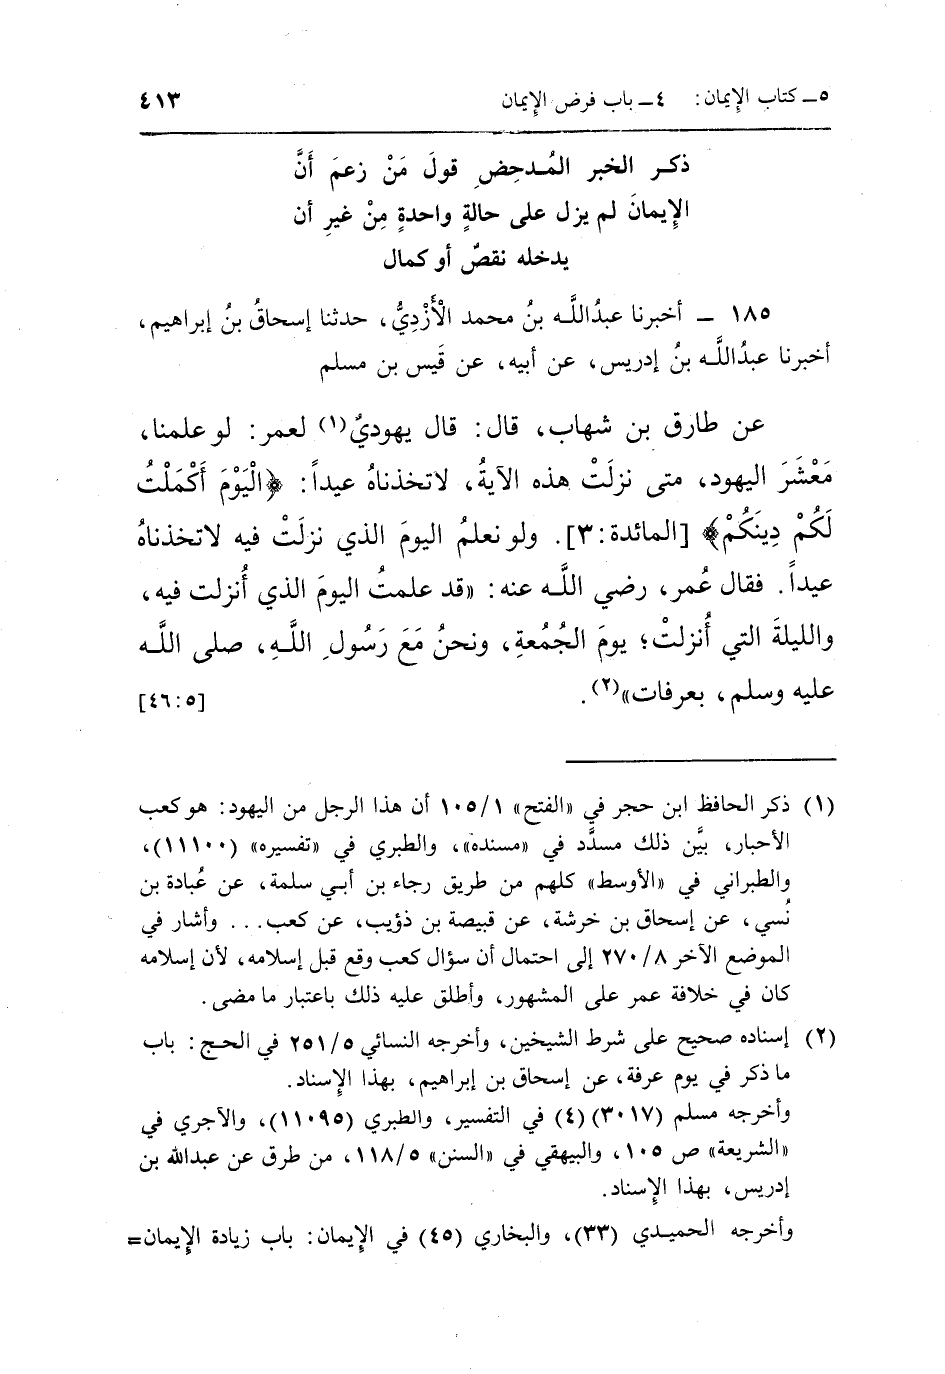 ٥ـ كتاب الإيمان: ٤ـ باب فرض الإيمان ٤١٣
ذكر الخبر المُدحِضِ قولَ مَنْ زعمَ أَنَّ
الإِيمانَ لم يزل على حالةٍ واحدةٍ مِنْ غيرِ أن
يدخله نقصٌ أو كمال
١٨٥ ـ أخبرنا عبدُاللَّه بنُ محمد الْأَزْدِيُّ، حدثنا إسحاقُ بنُ إبراهيم،
أخبرنا عبدُاللَّه بنُ إدريس، عن أبيه، عن قَيس بن مسلم
عن طارق بن شهاب، قال: قال يهوديٌ(١) لعمر: لو علمنا،
مَعْشَرَ اليهود، متى نزلَتْ هذه الآيةُ، لاتخذناهُ عيداً: ﴿الْيَوْمَ أَكْمَلْتُ
لَكُمْ دِينَكُمْ﴾ [المائدة:٣]. ولو نعلمُ اليومَ الذي نزلَتْ فيه لاتخذناهُ
عيداً. فقال عُمر، رضي اللَّه عنه: «قد علمتُ اليومَ الذي أُنزلت فيه،
والليلةَ التي أُنزلتْ؛ يومَ الجُمعةِ، ونحنُ مَعَ رَسُولِ اللَّهِ، صلى اللَّه
عليه وسلم، بعرفات»(٢). [٥:٤٦]
(١) ذكر الحافظ ابن حجر في «الفتح» ١٠٥/١ أن هذا الرجل من اليهود: هو كعب
الأحبار، بيَّن ذلك مسدَّد في «مسنده»، والطبري في «تفسيره» (١١١٠٠)،
والطبراني في «الأوسط» كلهم من طريق رجاء بن أبي سلمة، عن عُبادة بن
نُسي، عن إسحاق بن خرشة، عن قبيصة بن ذؤيب، عن كعب... وأشار في
الموضع الآخر ٢٧٠/٨ إلى احتمال أن سؤال كعب وقع قبل إسلامه، لأن إسلامه
كان في خلافة عمر على المشهور، وأطلق عليه ذلك باعتبار ما مضى.
(٢) إسناده صحيح على شرط الشيخين، وأخرجه النسائي ٢٥١/٥ في الحج: باب
ما ذكر في يوم عرفة، عن إسحاق بن إبراهيم، بهذا الإسناد.
وأخرجه مسلم (٣٠١٧)(٤) في التفسير، والطبري (١١٠٩٥)، والآجري في
«الشريعة» ص ١٠٥، والبيهقي في «السنن» ١١٨/٥، من طرق عن عبدالله بن
إدريس، بهذا الإسناد.
وأخرجه الحميدي (٣٣)، والبخاري (٤٥) في الإيمان: باب زيادة الإيمان=